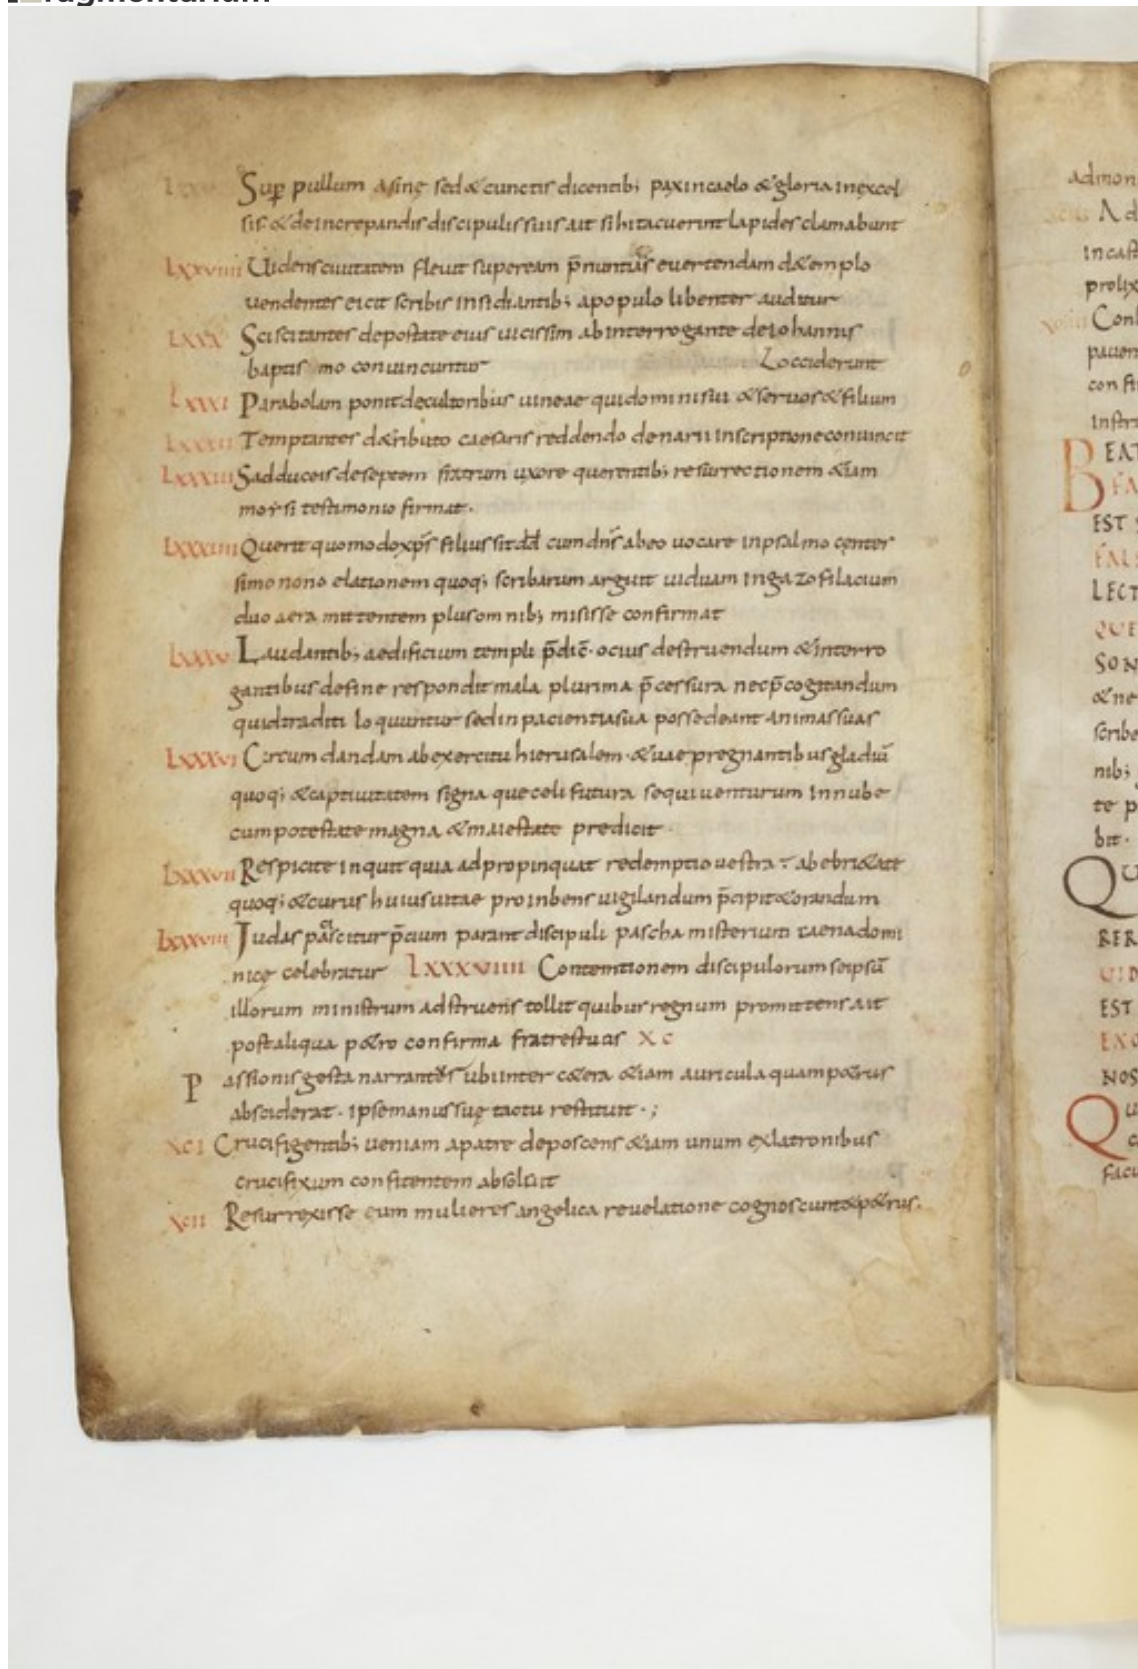 Fragmentarium
Sup pullum asinę sed& cunctis dicentib; pax in caelo &gloria in excel
sis &de increpandis discipulis suis ait si hi tacuerint lapides clamabunt
LXXVIIII Uidens ciuitatem fleuit super eam p̄nuntians euertendam d&emplo
uendentes eicit scribis insidiantib; a populo libenter auditur
LXXX Sciscitantes de potestate eius uicissim ab interrogante de iohannis
baptismo conuincuntur
occiderunt
LXXXI Parabolam ponit de cultoribus uineae qui domini sui &seruos &filium
LXXXII Temptantes d&ributo caesaris reddendo denarii inscriptione conuincit
LXXXIII Sadduceis de septem fratrum uxore querentib; resurrectionem &iam
moysi testimonio firmat.
LXXXIIII Querit quomodo xp̄s filius sit dd̄ cum dn̄s ab eo uocare in psalmo center
simo nono elationem quoq; scribarum arguit uiduam in gazofilacium
duo aera mittentem plus omnib; misisse confirmat
LXXXV Laudantib; aedificium templi p̄dic̄. ocius destruendum &interro
gantibus de fine respondit mala plurima p̄cessura nec p̄cogitandum
quid traditi loquuntur sed in pacientia sua possedeant animas suas
LXXXVI Circumdandam ab exercitu hierusalem. &uae pregnantibus gladiū
quoq; &captiuitatem signa que celi futura sequi uenturum in nube
cum potestate magna &maiestate predicit.
LXXXVII Respicite inquit quia adpropinquat redemptio uestra: ab ebri&ate
quoq; &curus huius uitae proinbens uigilandum p̄cipit &orandum
LXXXVIII Iudas paciscitur p̄cium parant discipuli pascha misterium caena domi
nicę celebratur LXXXVIIII Contemtionem discipulorum se ipsū
illorum ministrum adstruens tollit quibus regnum promittens ait
post aliqua p&ro confirma fratres tuos XC
Passionis gesta narrantes ubi inter c&era &iam auricula quam p&rus
absciderat. ipse manus suę tactu restituit.;
XCI Crucifigentib; ueniam a patre deposcens &iam unum ex latronibus
crucifixum confitentem absoluit
XCII Resurrexisse eum mulieres angelica reuelatione cognoscunt&p&rus.
admon
incast
prolix
pauen
con fi
instr
BEAT
FA
EST
FAL
LECT
QUE
SON
&ne
scribe
nib;
te p
bit.
QU
RER
UID
EST
EXC
NOS
QU
facu